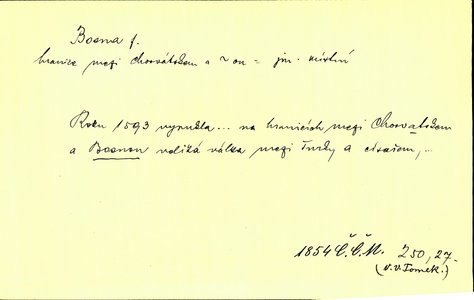 Bosna f.
hranice mezi Chorvátskem a ~ou = jm. místní
Roku 1593 vypukla... na hranicích mezi Chorvatskem
a Bosnou veliká válka mezi Turky a císařem,...
1854 Č.Č.M. 250, 27.
(V.V. Tomek.)